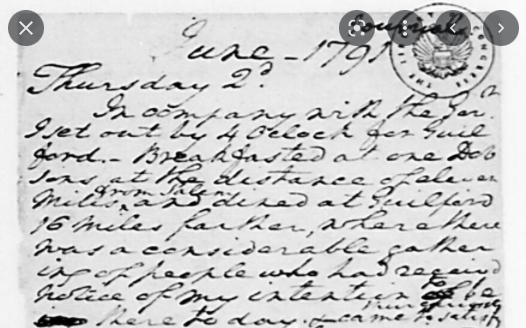 June - 1791
Thursday 2d
In company with the Gov.r
I set out by 4 Oclock for Guil
ford. - Breakfasted at one Dob
sons at the distance of eleven
miles from Salem and dined at Guilford
16 miles farther, where there
was a considerable gather
ing of people who had received
notice of my intention to be
there to day & came to satisfy